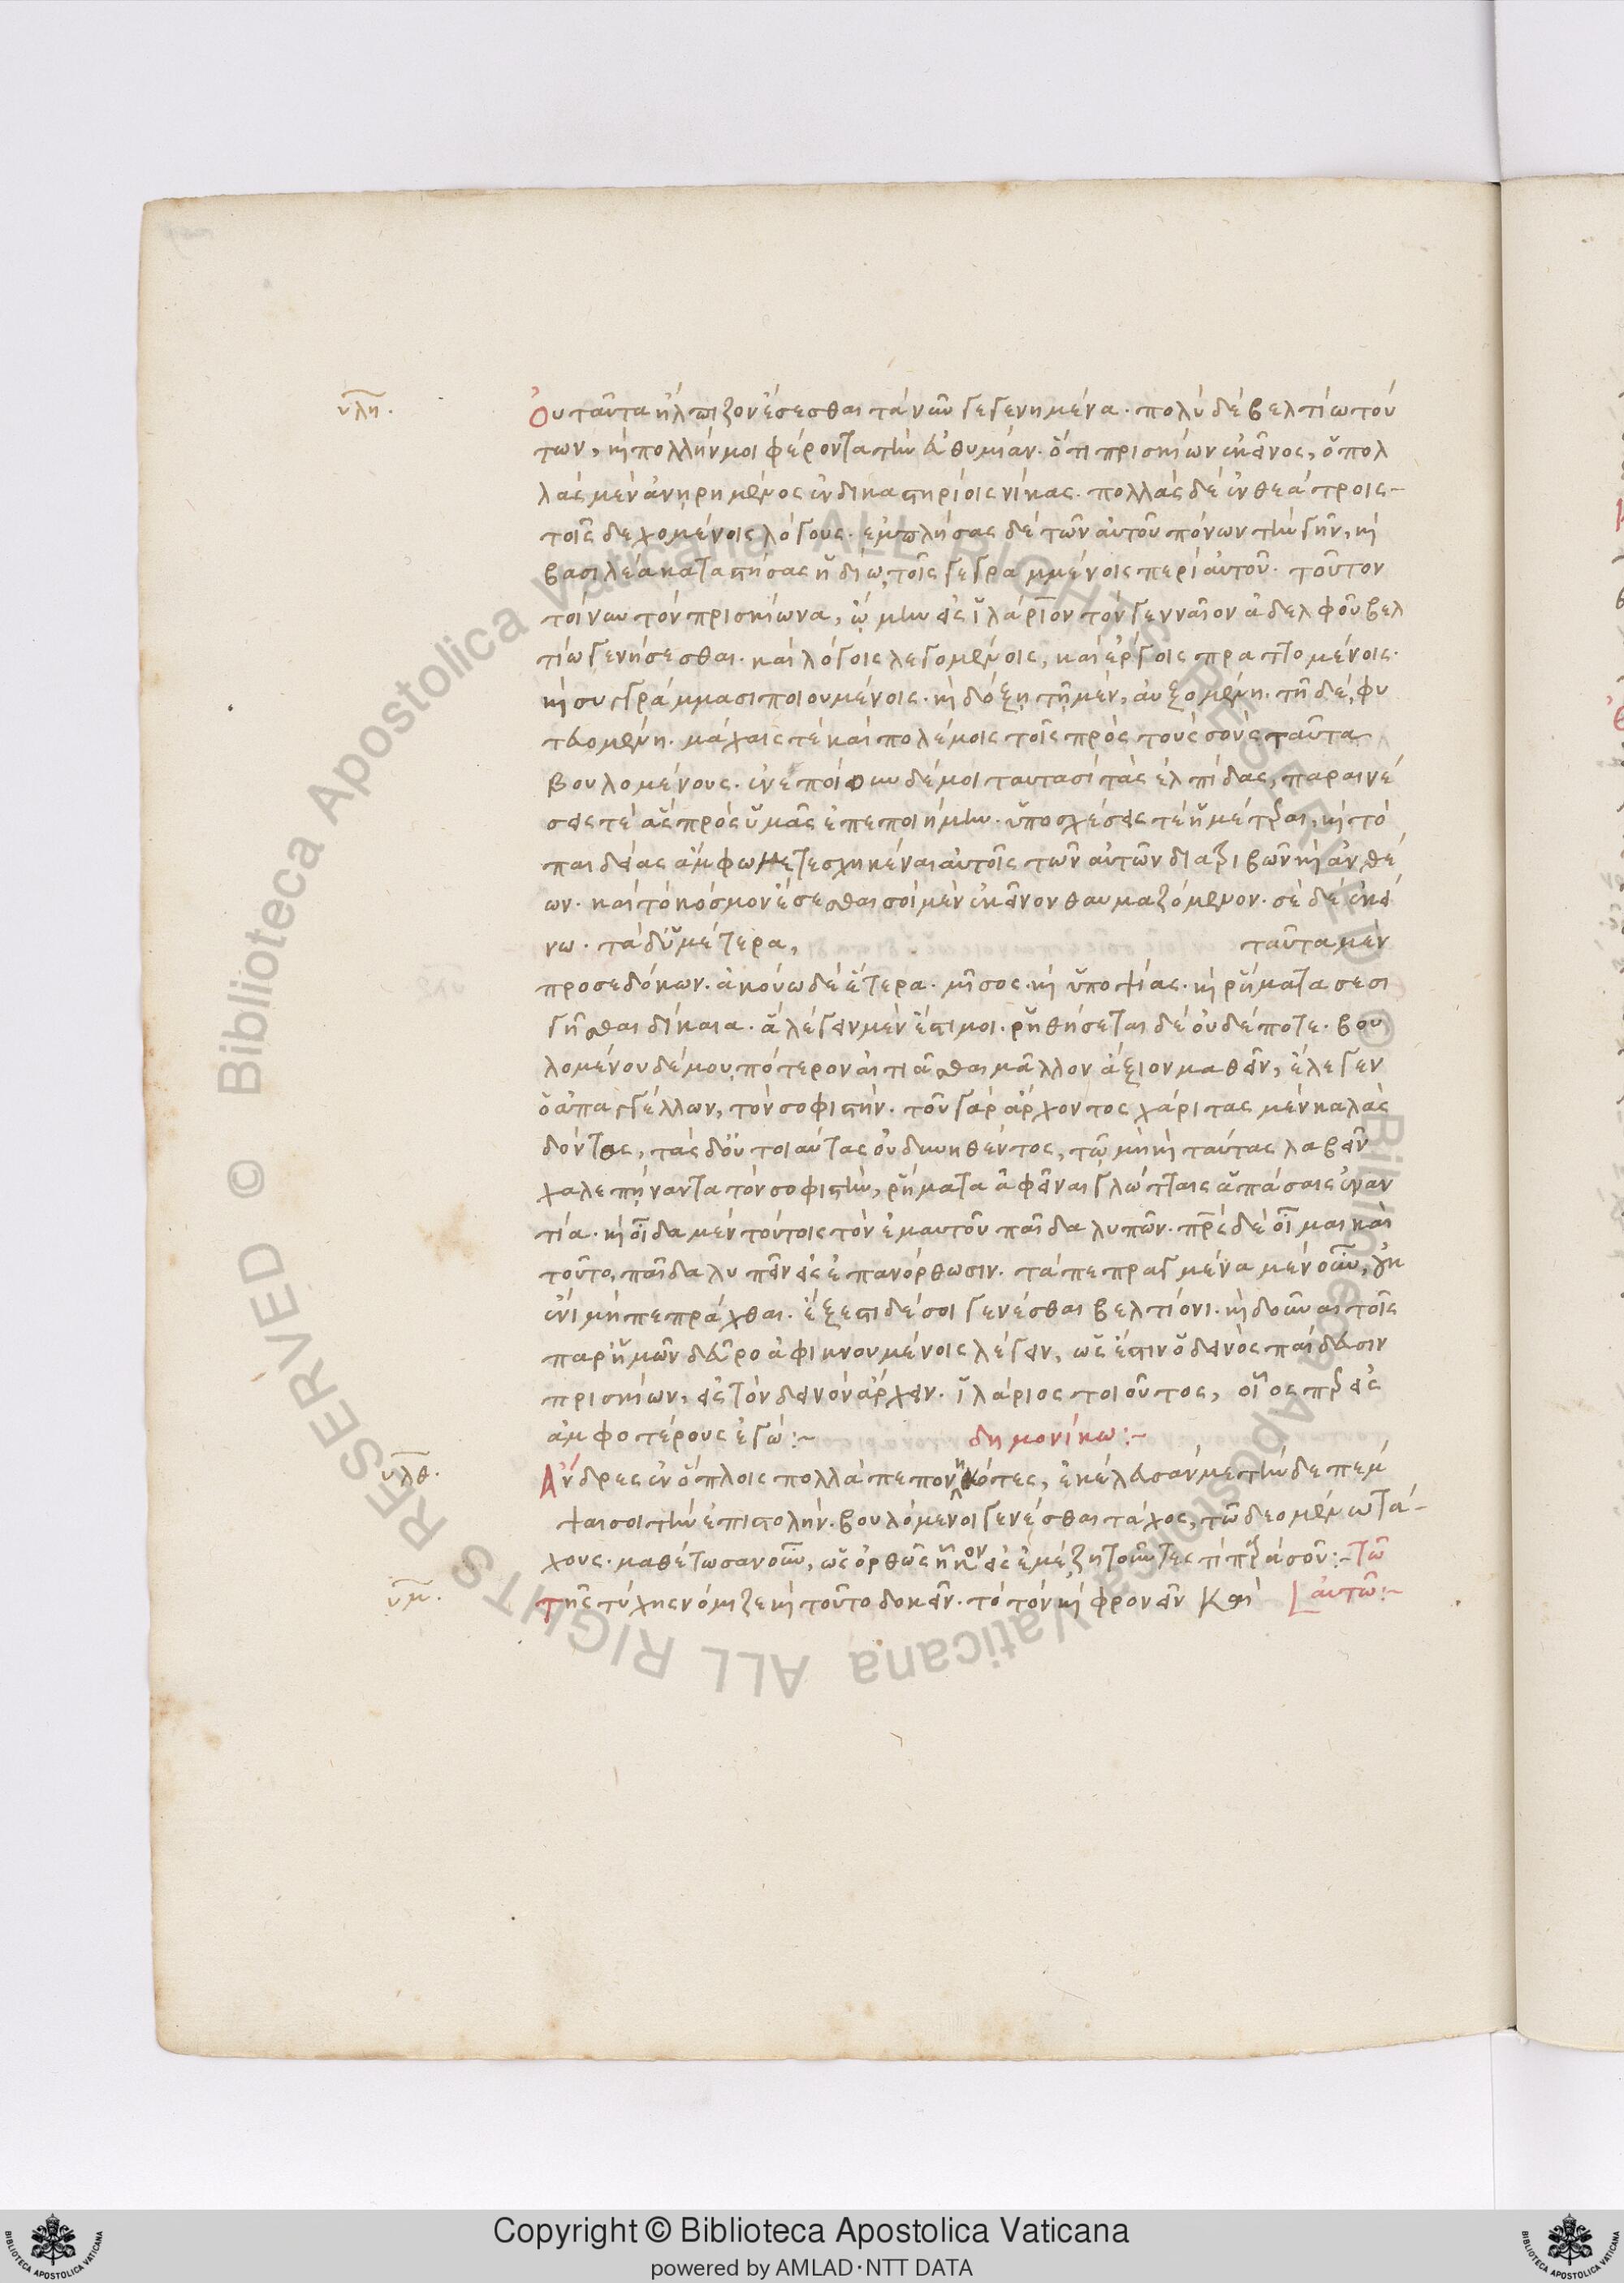 υλη.
Οὐ ταῦτα ἤλπιζον ἔσεσθαι τὰ νῦν γεγενημένα. πολὺ δὲ βελτίω τού
των, καὶ πολλήν μοι φέροντα τὴν εὐθυμίαν. ὅτι πρισκίων ἐκεῖνος, ὁ πολ
λὰς μὲν ἀνῃρημένος ἐν δικαστηρίοις νίκας. πολλὰς δὲ ἐν θεάτροις
τοῖς δεχομένοις λόγους. ἐμπλήσας δὲ τῶν αὑτοῦ πόνων τὴν γῆν, καὶ
βασιλέα καταστήσας ἡδίω τοῖς γεγραμμένοις περὶ αὐτοῦ. τοῦτον
τοίνυν τὸν πρισκίωνα, ᾤμην εἰς ἱλάριον τὸν γενναῖον ἀδελφοῦ βελ
τίω γενήσεσθαι. καὶ λόγοις λεγομένοις, καὶ ἔργοις πραττομένοις.
καὶ συγγράμμασι ποιουμένοις. καὶ δόξῃ τῇ μὲν, αὐξομένῃ. τῇ δέ, φυ
τευομένῃ. μάχαις τὲ καὶ πολέμοις τοῖς πρὸς τοὺς σοὺς ταῦτα
βουλομένους. ἐνεποίουν δέ μοι ταυτασὶ τὰς ἐλπίδας, παραινέ
σεις τὲ ἃς πρὸς ὑμᾶς ἐπεποιήμην. ὑποσχέσεις τὲ ἡμέτεραι, καὶ τὸ
παιδείας ἄμφω μετεσχηκέναι αὐτοῖς τῶν αὐτῶν διατριβῶν καὶ ἀνθέ
ων. καὶ τὸ κόσμον ἔσεσθαι σοὶ μὲν ἐκεῖνον θαυμαζόμενον. σὲ δὲ ἐκεί
νω. τὰ δ' ὑμέτερα, ταῦτα μὲν
προσεδόκων. ἀκούω δὲ ἕτερα. μῖσος. καὶ ὑποψίας. καὶ ῥήματα σεσι
γῆσθαι δίκαια. ἃ λέγειν μὲν ἔστι μοι. ῥηθήσεται δὲ οὐδέποτε. βου
λομένου δέ μου πότερον αἰτιᾶσθαι μᾶλλον ἄξιον μαθεῖν, ἔλεγεν
ὁ ἀπαγγέλλων, τὸν σοφιστήν. τοῦ γὰρ ἄρχοντος χάριτας μὲν καλὰς
δόντος, τὰς δ' οὐ τοιαύτας οὐ δυνηθέντος, τῷ μὴ καὶ ταύτας λαβεῖν
χαλεπήναντα τὸν σοφιστὴν, ῥήματα ἀφεῖναι γλώτταις ἁπάσαις ἐναν
τία. καὶ οἶδα μὲν τούτοις τὸν ἐμαυτοῦ παῖδα λυπῶν. πρὸς δὲ οἶμαι καὶ
τοῦτο, παῖδα λυπεῖν εἰς ἐπανόρθωσιν. τὰ πεπραγμένα μὲν οὖν, οὐκ
ἔνι μὴ πεπράχθαι. ἔξεστι δέ σοι γενέσθαι βελτίονι. καὶ δοῦναι τοῖς
παρ' ἡμῶν δεῦρο ἀφικνουμένοις λέγειν, ὡς ἔστιν ὁ δεινὸς παιδεύειν
πρισκίων, εἰς τὸν δεινὸν ἄρχειν. ἱλάριος τοιοῦτος, οἷος πατὴρ εἰς
ἀμφοτέρους ἐγώ:~ δημονίκω:~
υλθ.
Ἄνδρες ἐν ὅπλοις πολλὰ πεπονηκότες, ἐκέλευσάν με τήνδε πέμ
ψαι σοι τὴν ἐπιστολήν. βουλόμενοι γενέσθαι τάχος, τῶ δεομένω τά
χους. μαθέτωσαν οὖν, ὡς ὀρθῶς ἧκον εἰς ἐμὲ ζητοῦντες τὶ παρὰ σοῦ:~ Τῶ
υμ.
Τῆς τύχης νόμιζε καὶ τοῦτο δοκεῖν. τὸ τὸν καὶ φρονεῖν καὶ αὐτῶ:~
Copyright © Biblioteca Apostolica Vaticana
powered by AMLAD·NTT DATA
© Biblioteca Apostolica Vaticana ALL RIGHTS RESERVED
© Biblioteca Apostolica Vaticana ALL RIGHTS RESERVED
BIBLIOTECA APOSTOLICA VATICANA
BIBLIOTECA APOSTOLICA VATICANA